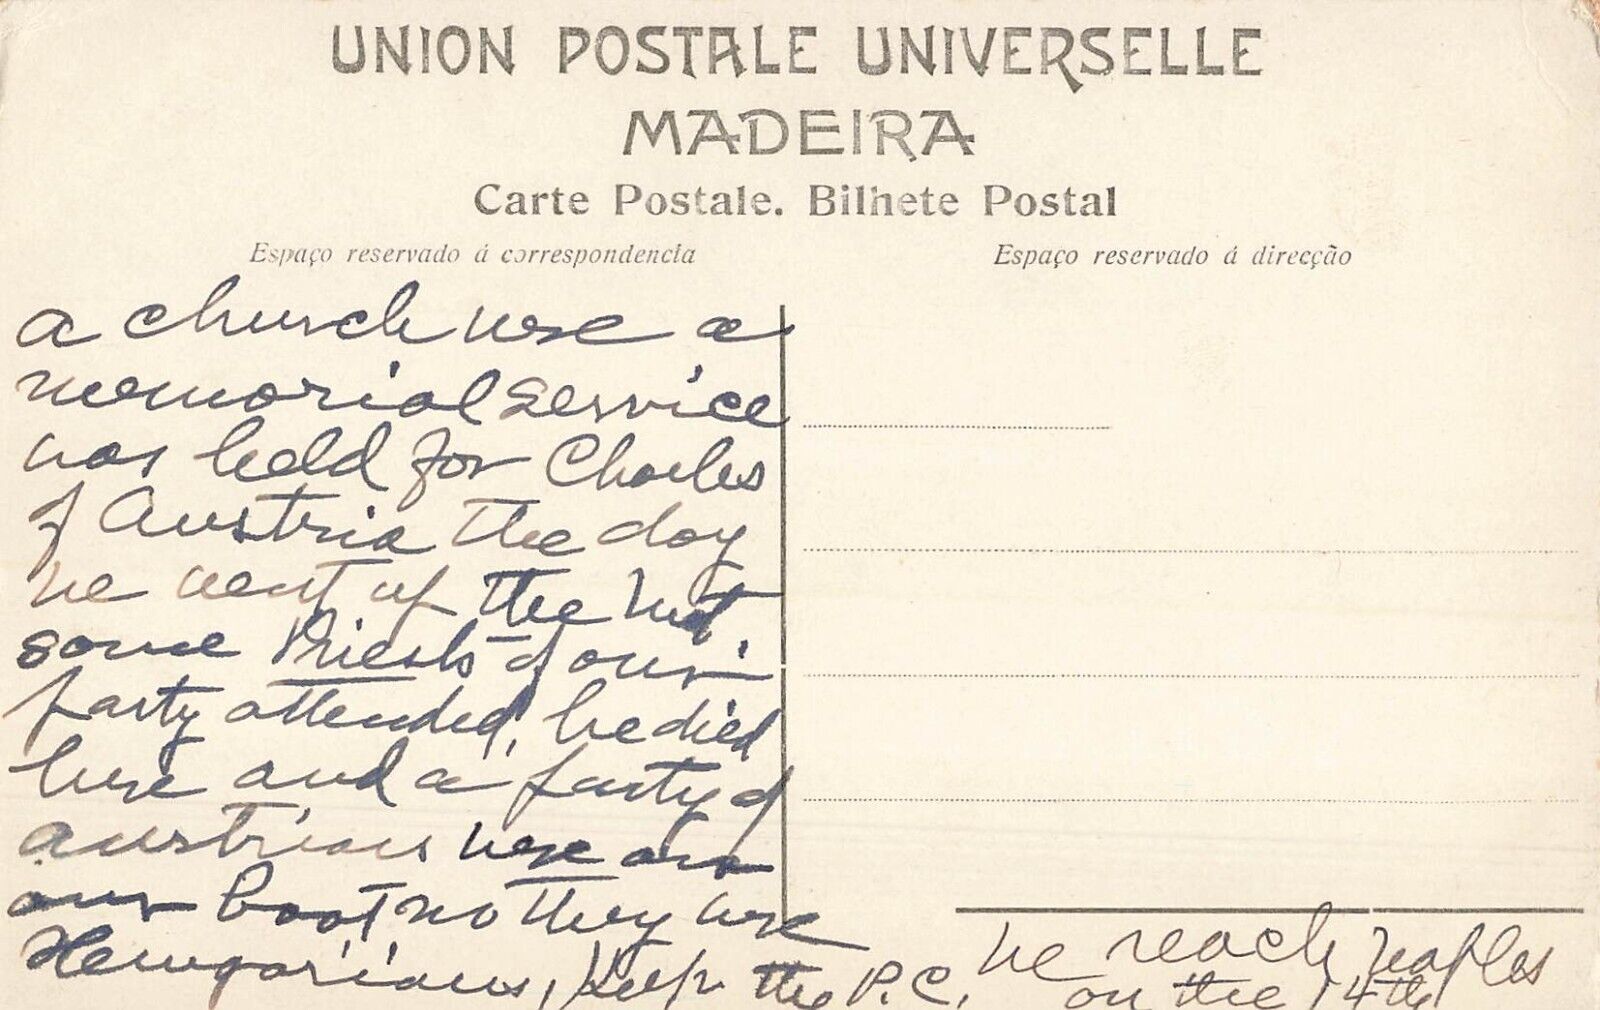 UNION POSTALE UNIVERSELLE
MADEIRA
Carte Postale. Bilhete Postal
Espaço reservado á correspondencia
Espaço reservado á direcção
a church were a
memorial service
was held for Charles
of Austria the day
we went up the Mt.
some Priests of our
party attended, he died
here and a party of
austrians were on
our boat no they were
Hungarians, Keep the P.C.
we reach Naples
on the 14th